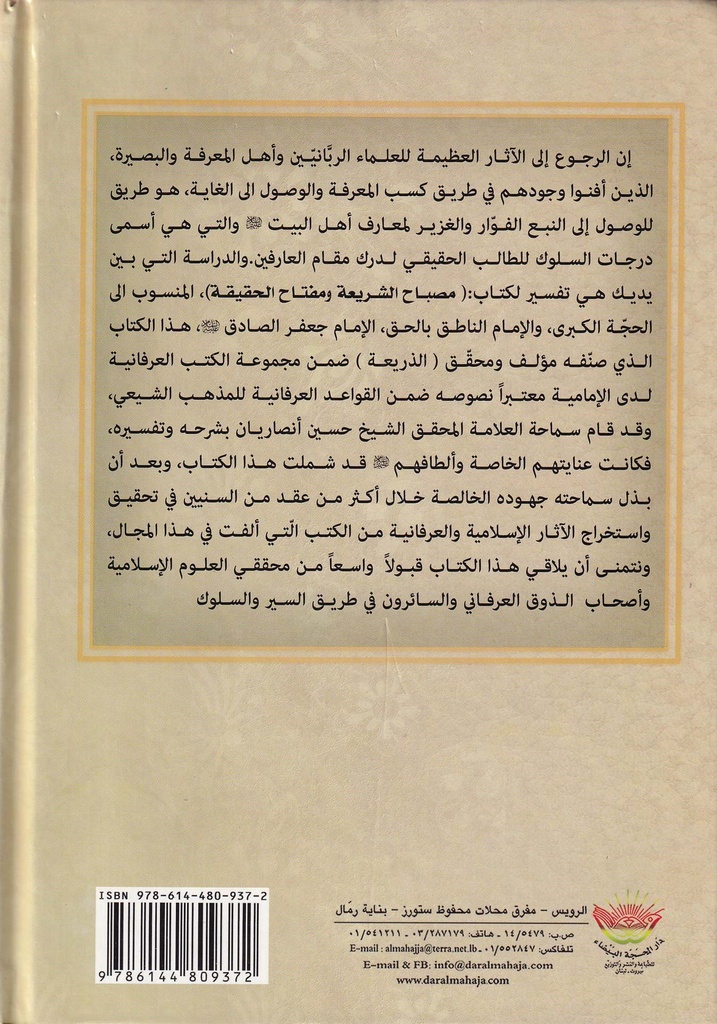 إن الرجوع إلى الآثار العظيمة للعلماء الربَّانيّين وأهل المعرفة والبصيرة،
الذين أفنوا وجودهم في طريق كسب المعرفة والوصول الى الغاية، هو طريق
للوصول إلى النبع الفوّار والغزير لمعارف أهل البيت ﷺ والتي هي أسمى
درجات السلوك للطالب الحقيقي لدرك مقام العارفين.والدراسة التي بين
يديك هي تفسير لكتاب:( مصباح الشريعة ومفتاح الحقيقة)، المنسوب الى
الحجّة الكبرى، والإمام الناطق بالحق، الإمام جعفر الصادق ﷺ، هذا الكتاب
الذي صنّفه مؤلف ومحقّق ( الذريعة ) ضمن مجموعة الكتب العرفانية
لدى الإمامية معتبراً نصوصه ضمن القواعد العرفانية للمذهب الشيعي،
وقد قام سماحة العلامة المحقق الشيخ حسين أنصاريان بشرحه وتفسيره،
فكانت عنايتهم الخاصة وألطافهم ﷺ قد شملت هذا الكتاب، وبعد أن
بذل سماحته جهوده الخالصة خلال أكثر من عقد من السنيين في تحقيق
واستخراج الآثار الإسلامية والعرفانية من الكتب الّتي ألفت في هذا المجال،
ونتمنى أن يلاقي هذا الكتاب قبولاً واسعاً من محققي العلوم الإسلامية
وأصحاب الذوق العرفاني والسائرون في طريق السير والسلوك
ISBN 978-614-480-937-2
9 786144 809372
الرويس - مفرق محلات محفوظ ستورز - بناية رمّال
ص.ب: ١٤/٥٤٧٩ - هاتف: ٠٣/٢٨٧١٧٩ - ٠١/٥٤١٢١١
تلفاكس: ٠١/٥٥٢٨٤٧ - E-mail : almahajja@terra.net.lb
E-mail & FB: info@daralmahaja.com
www.daralmahaja.com
دار المحجّة البيضاء
للطباعة والنشر والتوزيع
بيروت - لبنان